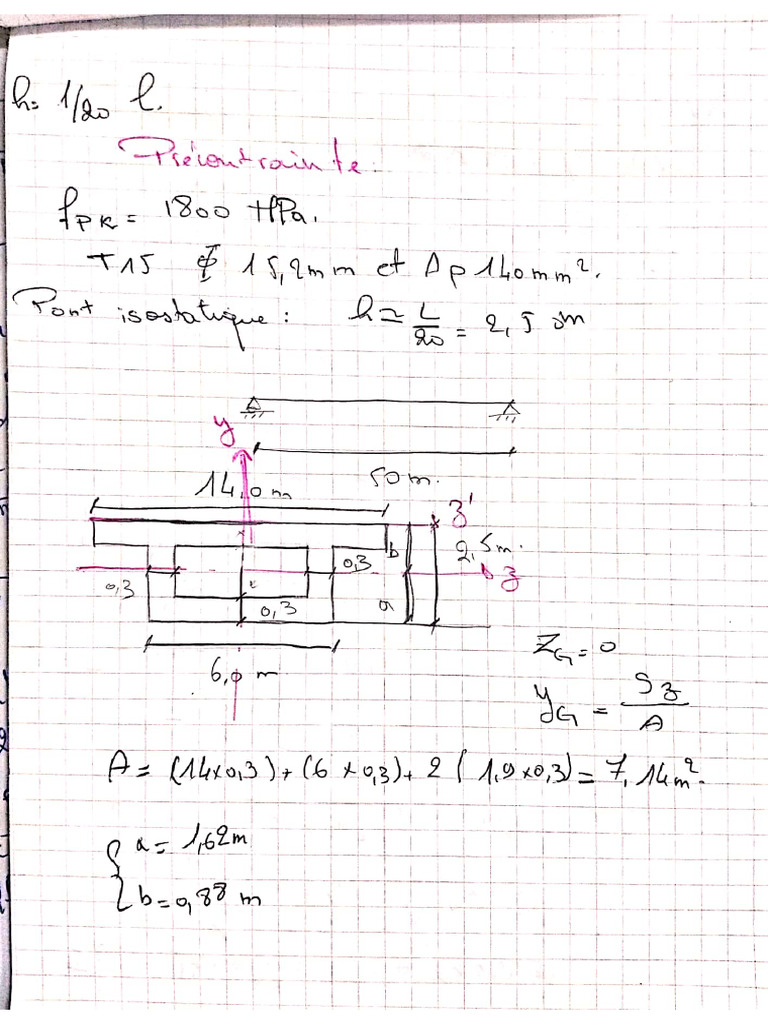 h= 1/20 l.
Précontrainte.
fPK = 1800 MPa.
T15 ϕ 15,2mm et Ap 140mm².
Pont isostatique : h ≃ L/20 = 2,5 m
50m.
y
14,0 m
z'
2,5m.
b
0,3
z
0,3
0,3
a
6,0 m
ZG = 0
yG = Sz/A
A = (14x0,3)+(6x0,3)+2(1,9x0,3)=7,14m².
{ a= 1,62m
b=0,88 m